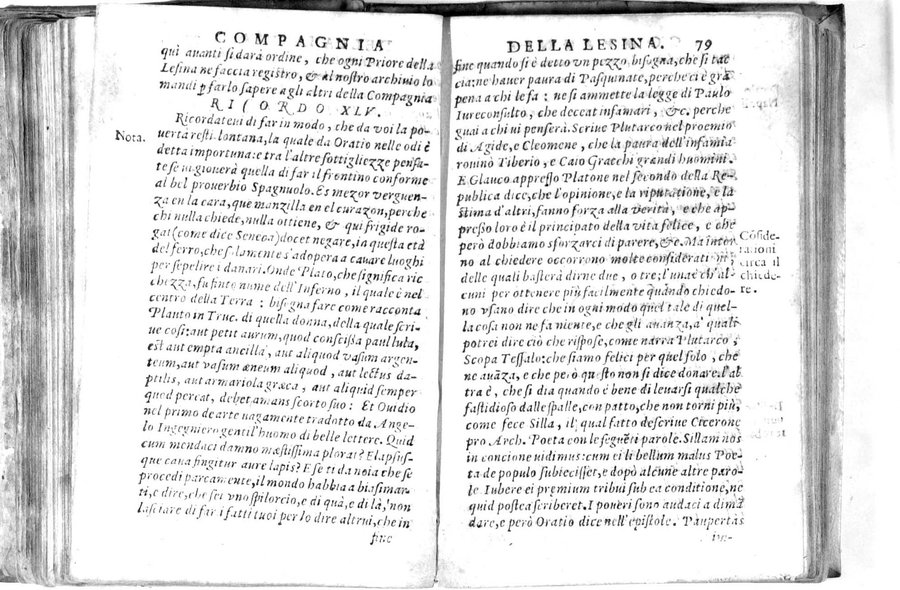 COMPAGNIA
quì auanti si darà ordine, che ogni Priore della
Lesina ne faccia registro, & al nostro archiuio lo
mandi ꝑ farlo sapere agli altri della Compagnia
RICORDO XLV.
Nota.
Ricordateui di far in modo, che da voi la po-
uertà resti lontana, la quale da Oratio nelle odi è
detta importuna: e tra l'altre sottigliezze pensa-
te se vi giouerà quella di far il frontino conforme
al bel prouerbio Spagnuolo. Es mezor verguen-
za en la cara, que manzilla en el curazon, perche
chi nulla chiede, nulla ottiene, & qui frigide ro-
gat (come dice Seneca) docet negare, in questa età
del ferro, che solamente s'adopera a cauare luoghi
per sepelire i danari. Onde Plato, che significa ric
chezza, fu finto nume dell'Inferno, il quale è nel
centro della Terra : bisogna fare come racconta
Plauto in Truc. di quella donna, della quale scri-
ue così: aut petit aurum, quod conscissa paullula,
est aut empta ancilla, aut aliquod vasum argen-
teum, aut vasum æneum aliquod, aut lectus da-
ptilis, aut armariola græca, aut aliquid semper
quod percat, debet amans scorto suo : Et Ouidio
nel primo de arte vagamente tradotto da Ange-
lo Ingegniero gentil'huomo di belle lettere. Quid
cum mendaci damno mæstissima plorat? Elapsus-
que caua fingitur aure lapis? E se ti dà noia che se
procedi parcamente, il mondo habbia a biasimar-
ti, e dire, che sei vno spilorcio, e di quà, e di là, non
lasciare di far i fatti tuoi per lo dire altrui, che in
fine
DELLA LESINA. 79
fine quando si è detto vn pezzo, bisogna, che si tac
cia: ne hauer paura di Pasquinate, perche ci è grā
pena a chi le fa : ne si ammette la legge di Paulo
Iureconsulto, che deceat infamari, &c. perche
guai a chi vi penserà. Scriue Plutarco nel proemio
di Agide, e Cleomene, che la paura dell'infamia
rouinò Tiberio, e Caio Gracchi grandi huomini.
E Glauco appresso Platone nel secondo della Re-
publica dice, che l'opinione, e la riputatione, e la
stima d'altri, fanno forza alla verità, e che ap-
presso loro è il principato della vita felice, e che
però dobbiamo sforzarci di parere, &c. Ma inter
no al chiedere occorrono molte considerationi;
delle quali basterà dirne due, o tre; l'una è, ch'al-
cuni per ottenere più facilmente quando chiedo-
no vsano dire che in ogni modo quel tale di quel-
la cosa non ne fa niente, e che gli auanza, a' quali
potrei dire ciò che rispose, come narra Plutarco,
Scopa Tessalo: che siamo felici per quel solo, che
ne auāza, e che però questo non si dice donare. l'al
tra è, che si dia quando è bene di leuarsi qualche
fastidioso dalle spalle, con patto, che non torni più,
come fece Silla, il qual fatto descriue Cicerone
pro Arch. Poeta con le seguēti parole. Sillam nos
in concione vidimus: cum ei libellum malus Poe-
ta de populo subiecisset, e dopò alcune altre paro-
le. Iubere ei premium tribui sub ea conditione, ne
quid postea scriberet. I poueri sono audaci a dimā
dare, e però Oratio dice nell'epistole. Paupertas
Cōside-
rationi
circa il
chiede-
re.